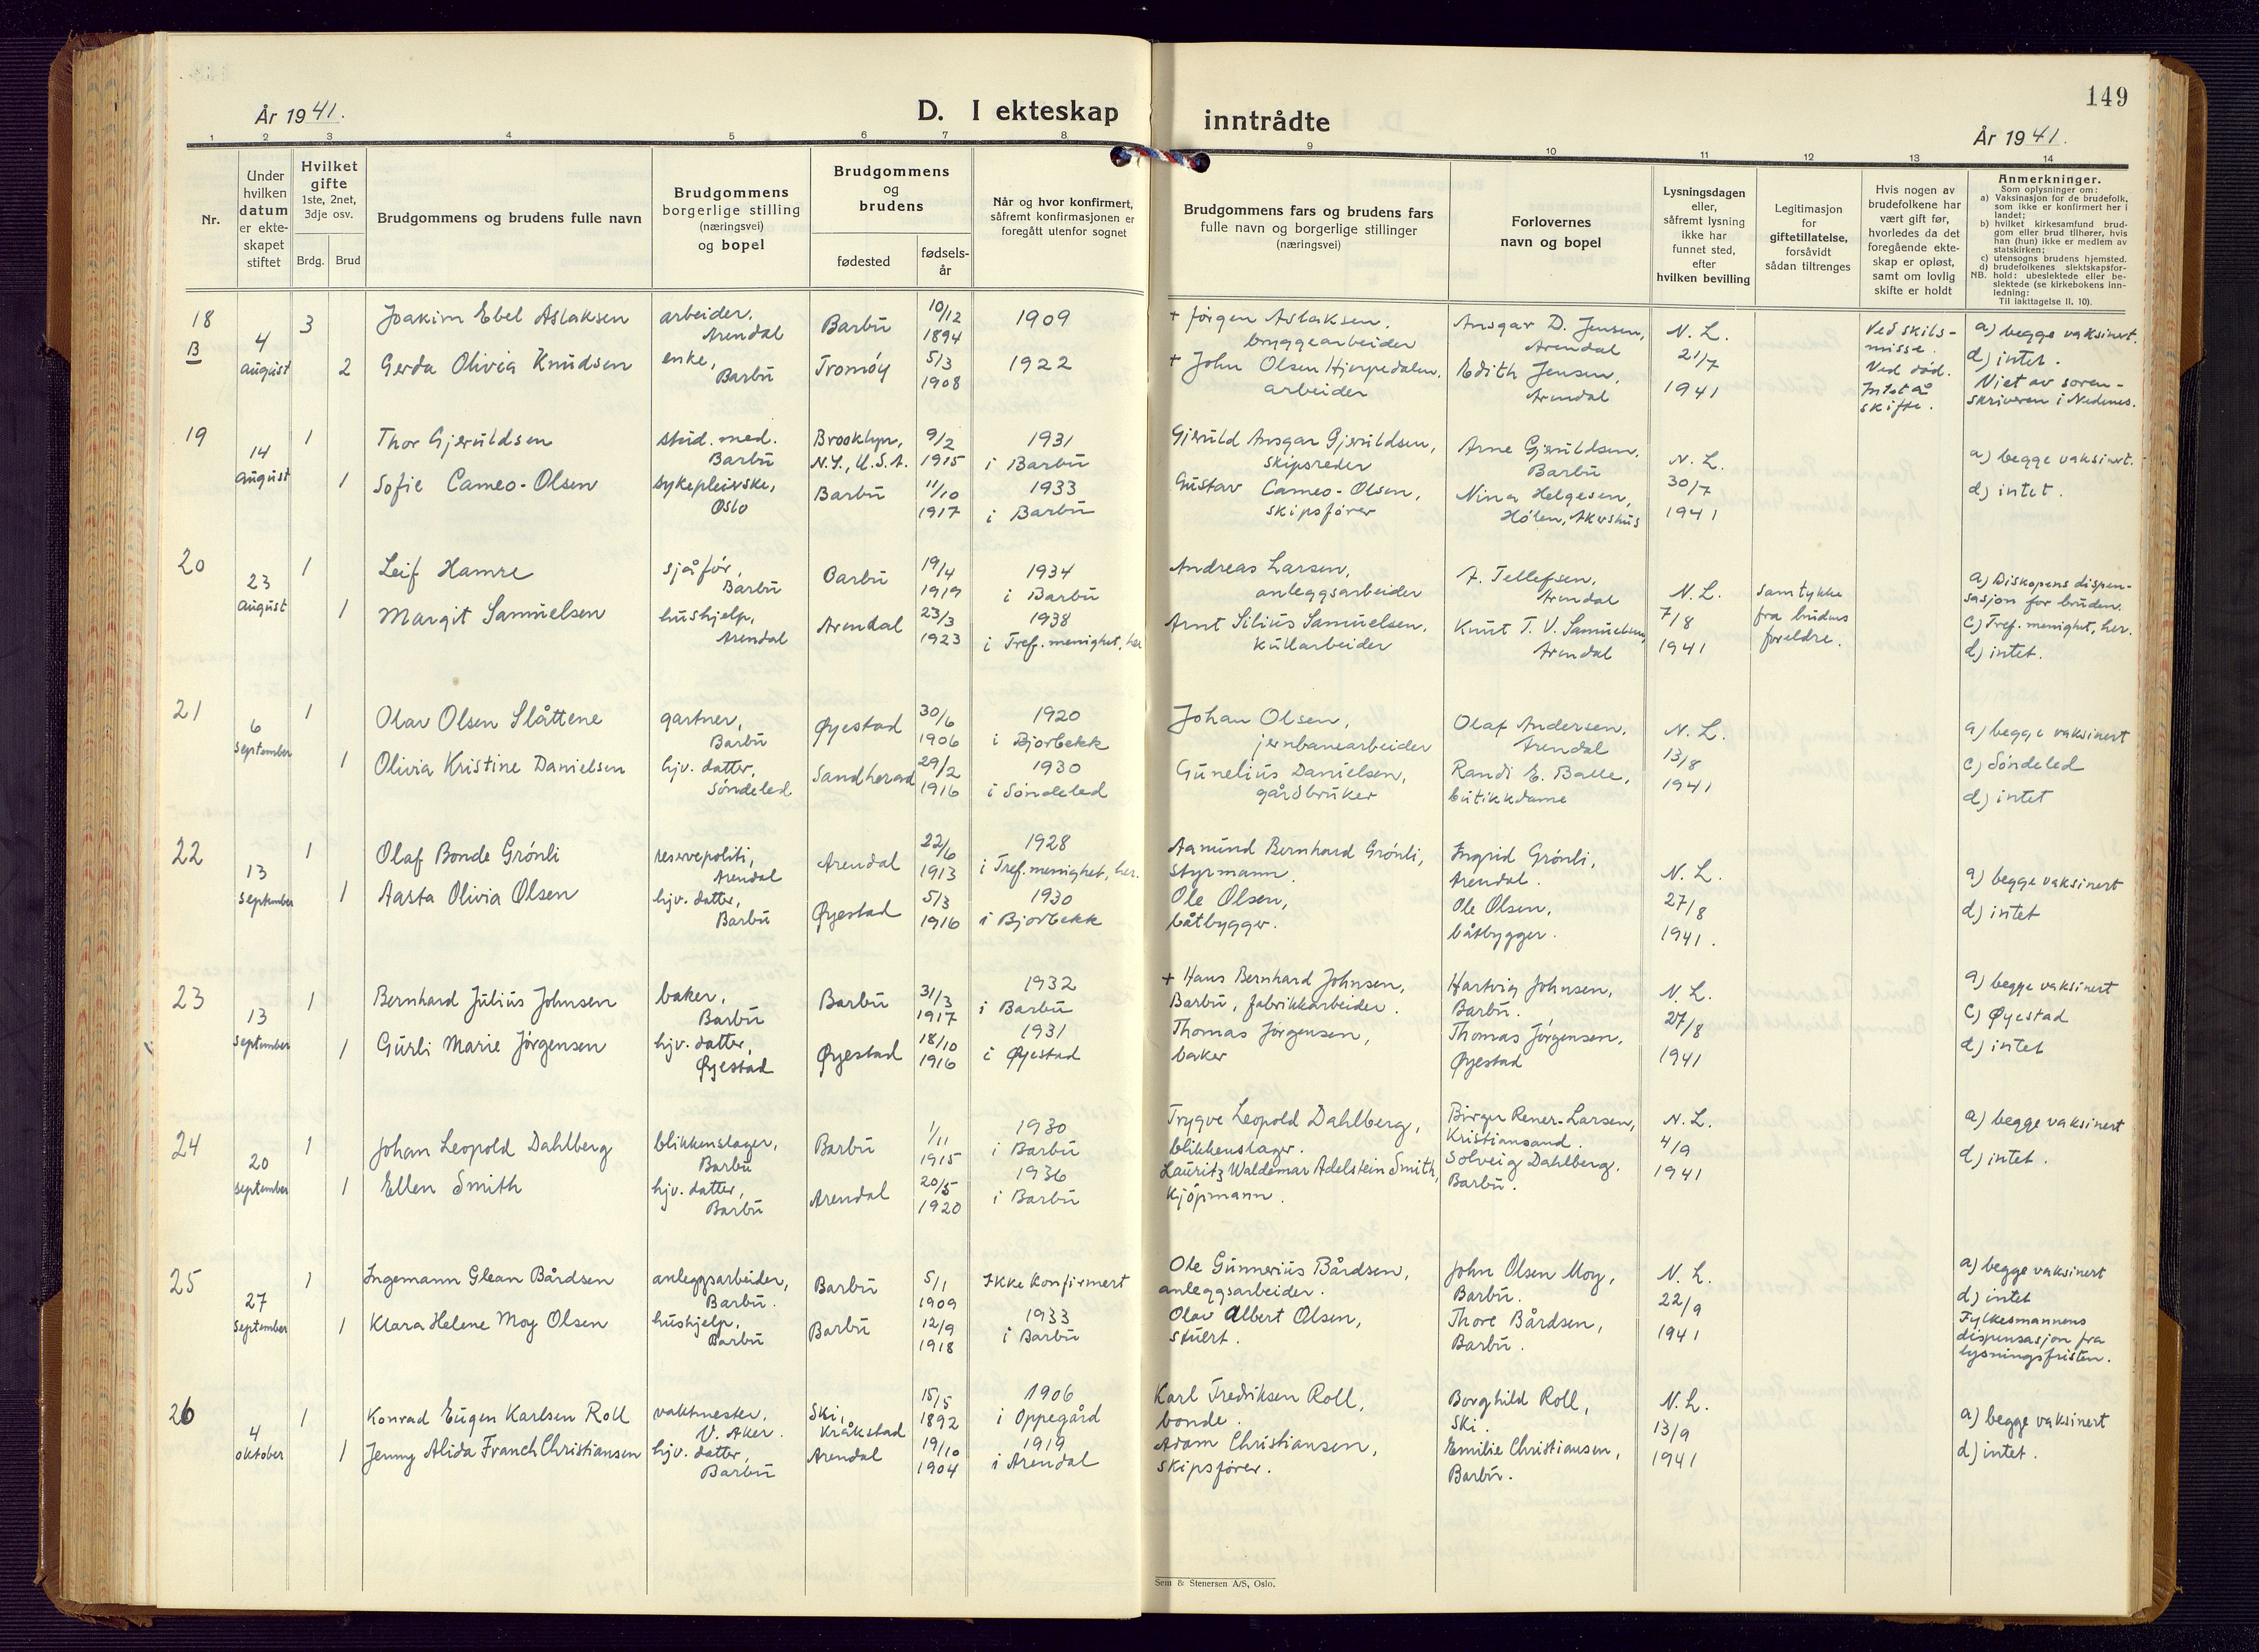 149
År 1941.
D. I ekteskap inntrådte
År 1941.
1 2 3 4 5 6 7 8 9 10 11 12 13 14
Nr.
Under hvilken datum er ekteskapet stiftet
Hvilket gifte 1ste, 2net, 3dje osv.
Brdg. Brud
Brudgommens og brudens fulle navn
Brudgommens borgerlige stilling (næringsvei) og bopel
Brudgommens og brudens
fødested
fødsels-år
Når og hvor konfirmert, såfremt konfirmasjonen er foregått utenfor sognet
Brudgommens fars og brudens fars fulle navn og borgerlige stillinger (næringsvei)
Forlovernes navn og bopel
Lysningsdagen eller, såfremt lysning ikke har funnet sted, efter hvilken bevilling
Legitimasjon for giftetillatelse, forsåvidt sådan tiltrenges
Hvis nogen av brudefolkene har vært gift før, hvorledes da det foregående ekteskap er opløst, samt om lovlig skifte er holdt
Anmerkninger.
Som oplysninger om:
a) Vaksinasjon for de brudefolk, som ikke er konfirmert her i landet;
b) hvilket kirkesamfund brudgom eller brud tilhører, hvis han (hun) ikke er medlem av statskirken;
c) utensogns brudens hjemsted.
d) brudefolkenes slektskapsforhold: ubeslektede eller beslektede (se kirkebokens innledning:
NB. Til iakttagelse II. 10).
18 B
4 august
3 Joakim Ebel Aslaksen arbeider, Arendal Barbu 10/12 1894 1909
+ Jørgen Aslaksen, bryggearbeider Ansgar D. Jensen, Arendal
2 Gerda Olivia Knudsen enke, Barbu Tromøy 5/3 1908 1922
+ John Olsen Hjerpedalen, arbeider Edith Jensen, Arendal
N. L. 21/7 1941
Ved skilsmisse. Ved død. Intet å skifte.
a) begge vaksinert. d) intet. Viet av sorenskriveren i Nedenes.
19
14 august
1 Thor Gjeruldsen stud. med. Barbu Brooklyn, N.Y., U.S.A. 9/2 1915 1931 i Barbu
Gjeruld Ansgar Gjeruldsen, skipsreder Arne Gjeruldsen, Barbu
1 Sofie Cameo-Olsen sykepleierske, Oslo Barbu 11/10 1917 1933 i Barbu
Gustav Cameo-Olsen, skipsfører Nina Helgesen, Hølen, Akershus
N. L. 30/7 1941
a) begge vaksinert. d) intet.
20
23 august
1 Leif Hamre sjåfør, Barbu Barbu 19/4 1919 1934 i Barbu
Andreas Larsen, anleggsarbeider F. Tellefsen, Arendal
1 Margit Samuelsen hushjelp, Arendal Arendal 23/3 1923 1938 i Tref. menighet, her
Arnt Silius Samuelsen, kullarbeider Knut T. V. Samuelsen, Arendal
N. L. 7/8 1941
samtykke fra brudens foreldre.
a) Biskopens dispensasjon for bruden. c) Tref. menighet, her. d) intet.
21
6 september
1 Olav Olsen Slåttene gartner, Barbu Øyestad 30/6 1906 1920 i Bjorbekk
Johan Olsen, jernbanearbeider Olaf Andersen, Arendal
1 Olivia Kristine Danielsen hjv. datter, Søndeled Sandherad 29/2 1916 1930 i Søndeled
Gunelius Danielsen, gårdbruker Randi E. Balle, butikkdame
N. L. 13/8 1941
a) begge vaksinert c) Søndeled d) intet
22
13 september
1 Olaf Bonde Grønli reservepoliti, Arendal Arendal 22/6 1913 1928 i Tref. menighet, her.
Aamund Bernhard Grønli, styrmann. Ingrid Grønli, Arendal.
1 Aasta Olivia Olsen hjv. datter, Barbu Øyestad 5/3 1916 1930 i Bjorbekk
Ole Olsen, båtbygger. Ole Olsen, båtbygger.
N. L. 27/8 1941.
a) begge vaksinert d) intet
23
13 september
1 Bernhard Julius Johnsen baker, Barbu Barbu 31/3 1917 1932 i Barbu
+ Hans Bernhard Johnsen, Barbu, fabrikkarbeider. Hartvig Johnsen, Barbu.
1 Gurli Marie Jørgensen hjv. datter, Øyestad Øyestad 18/10 1916 1931 i Øyestad
Thomas Jørgensen, baker Thomas Jørgensen, Øyestad
N. L. 27/8 1941
a) begge vaksinert c) Øyestad d) intet
24
20 september
1 Johan Leopold Dahlberg blikkenslager, Barbu Barbu 1/11 1915 1930 i Barbu
Trygve Leopold Dahlberg, blikkenslager. Birger Rener-Larsen, Kristiansand.
1 Ellen Smith hjv. datter, Barbu Arendal 20/5 1920 1936 i Barbu
Lauritz Waldemar Adelstein Smith, kjøpmann. Solveig Dahlberg, Barbu.
N. L. 4/9 1941
a) begge vaksinert d) intet.
25
27 september
1 Ingemann Glean Bårdsen anleggsarbeider, Barbu. Barbu 5/1 1909 Ikke konfirmert
Ole Gunnerius Bårdsen, anleggsarbeider. John Olsen Moy, Barbu.
1 Klara Helene Moy Olsen hushjelp, Barbu Barbu 12/9 1918 1933 i Barbu
Olav Albert Olsen, stuert. Thore Bårdsen, Barbu.
N. L. 22/9 1941
a) begge vaksinert d) intet Fylkesmannens dispensasjon fra lysningsfristen.
26
4 oktober
1 Konrad Eugen Karlsen Roll vaktmester, V. Aker. Ski, Kråkstad 15/5 1892 1906 i Oppegård
Karl Fredriksen Roll, bonde. Borghild Roll, Ski.
1 Jenny Alida Franch Christiansen hjv. datter, Barbu Arendal 19/10 1904 1919 i Arendal
Adam Christiansen, skipsfører. Emilie Christiansen, Barbu.
N. L. 13/9 1941
a) begge vaksinert d) intet.
Sem & Stenersen A/S, Oslo.